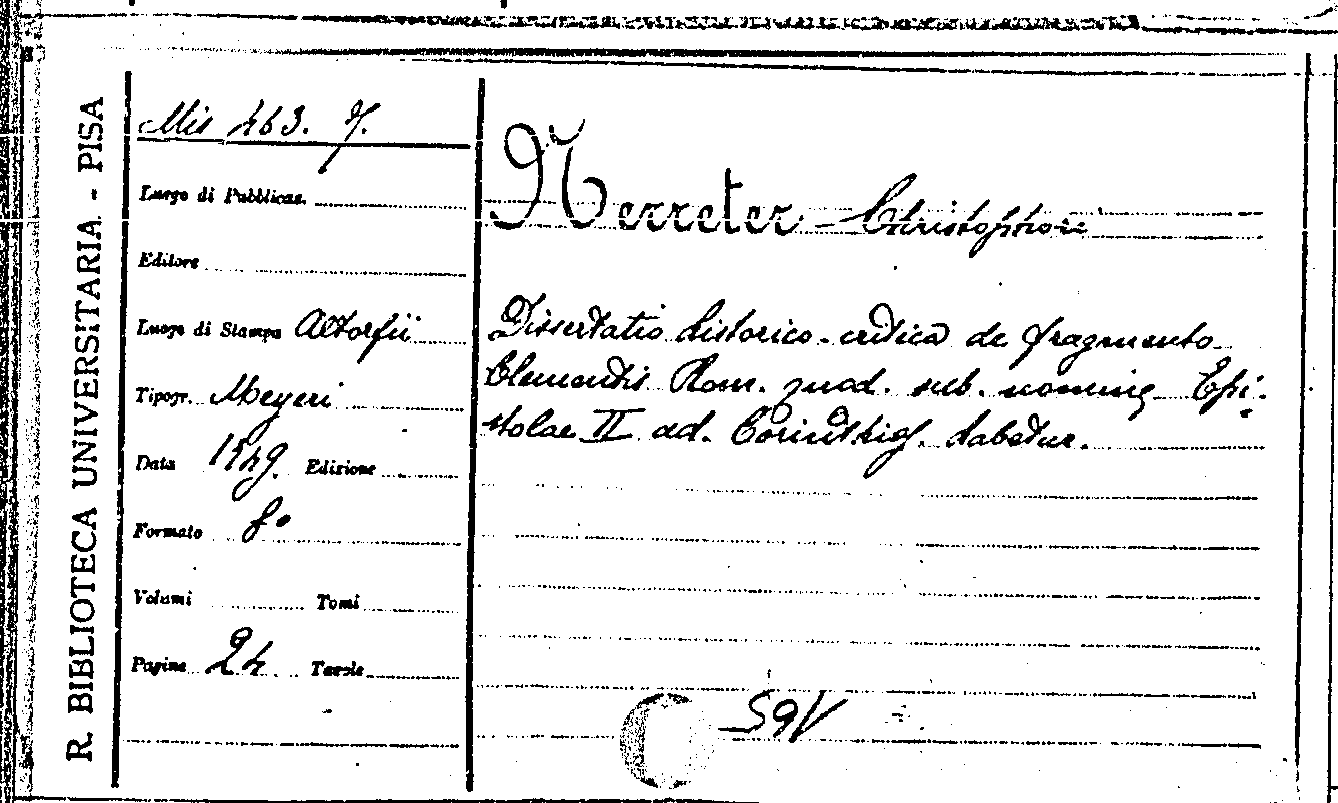 R. BIBLIOTECA UNIVERSITARIA - PISA
Mis 463. 7.
Luogo di Pubblicaz.
Editore
Luogo di Stampa Altorfii
Tipogr. Meyeri
Data 1749. Edizione
Formato 8°
Volumi Tomi
Pagine 24 Tavole
Nerreter Christophori
Dissertatio historico-critica de fragmento
Clementis Rom. quod. sub. nomine Epi-
stolae II ad. Corinthios. habetur.